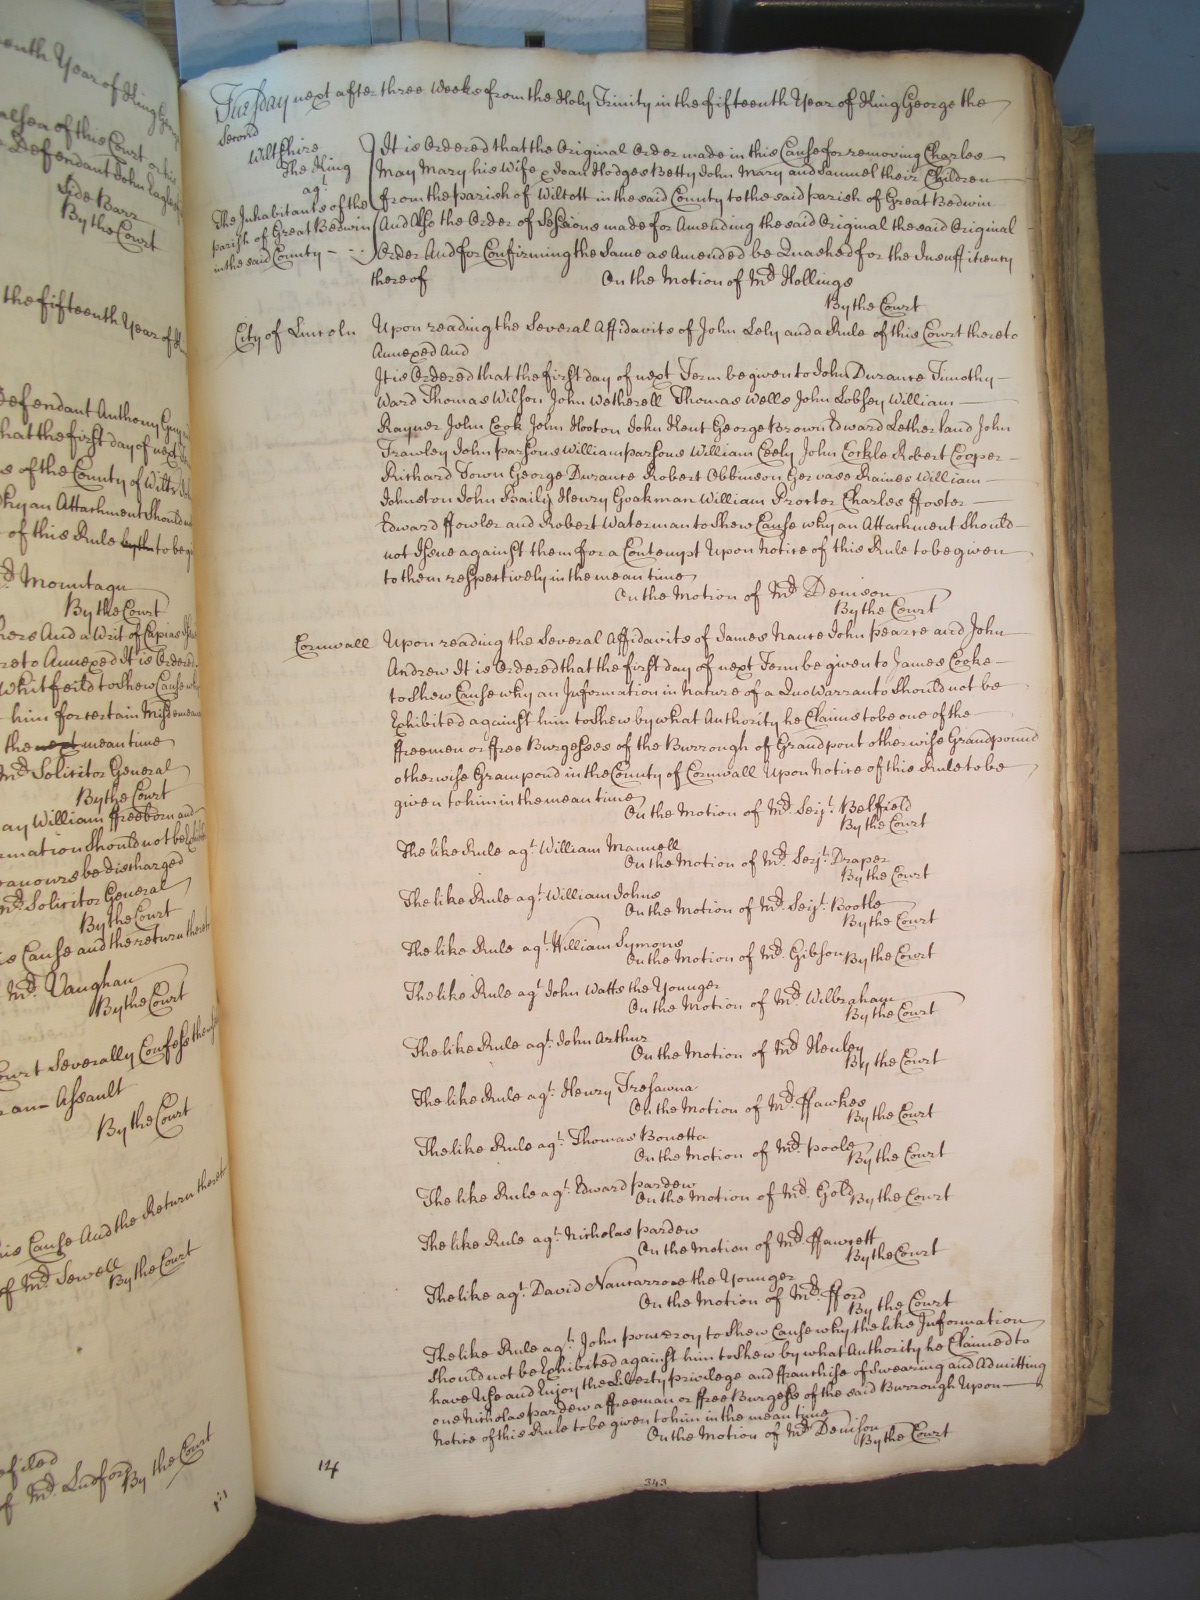 enth Year of King George
alsea of this Court
Defendant John
Side Barr
By the Court
the fifteenth Year of
Defendant Anthony
that the first day of next
of the County of Wilts
why an Attachment Should
of this Rule to be
Mr. Mountagu
By the Court
here And a Writ of Capias
reto Annexed It is Ordered
Whitfeild to shew Cause
him for certain Misdemea
the next meantime
Mr. Solicitor General
By the Court
ay William ffreeborn and
rmation Should not be
be discharged
Mr. Solicitor General
By the Court
is Cause and the return thereto
Mr. Vaughan
By the Court
Court Severally Confess the
an Assault
By the Court
his Cause And the Return thereto
of Mr. Sewell
By the Court
filed
of Mr. Ludford By the Court
Tuesday next after three Weeks from the Holy Trinity in the fifteenth Year of King George the
Second
Wiltshire
The King
agt.
The Inhabitants of the
parish of Great Bedwin
in the said County
It is Ordered that the Original Order made in this Cause for removing Charles
May Mary his Wife & Joan Hodges Betty John Mary and Samuel their Children
from the parish of Wilcott in the said County to the said parish of Great Bedwin
And Also the Order of Sessions made for Amending the said Original the said Original
Order And for Confirming the Same as Amended be Quashed for the Insufficiency
thereof On the Motion of Mr. Hollings
By the Court
City of Lincoln Upon reading the Several Affidavits of John Lely and a Rule of this Court thereto
Annexed And
It is Ordered that the first day of next Term be given to John Durance Timothy
Ward Thomas Wilson John Wetherell Thomas Wells John Lobsey William
Rayner John Cook John Hooton John Kent George Brown Edward Letherland John
Frawley John parsons William parsons William Ceely John Corkle Robert Cooper
Richard Town George Durance Robert Obbinson Gervase Raines William
Johnston John Baily Henry Goakman William Procter Charles ffoster
Edward ffowler and Robert Waterman to Shew Cause why an Attachment Should
not Issue against them for a Contempt Upon Notice of this Rule to be given
to them respectively in the mean time
On the Motion of Mr. Denison
By the Court
Cornwall Upon reading the Several Affidavits of James Nance John pearce and John
Andrew It is Ordered that the first day of next Term be given to James Cooke
to shew Cause why an Information in Nature of a Quo Warranto Should not be
Exhibited against him to Shew by what Authority he Claims to be one of the
ffreemen or ffree Burgesses of the Burrough of Grandpont otherwise Grandpound
otherwise Grampond in the County of Cornwall Upon Notice of this Rule to be
given to him in the mean time
On the Motion of Mr. Serjt. Belfield
By the Court
The like Rule agt. William Mannell
On the Motion of Mr. Serjt. Draper
By the Court
The like Rule agt. William Johns
On the Motion of Mr. Serjt. Bootle
By the Court
The like Rule agt. William Symons
On the Motion of Mr. Gibson By the Court
The like Rule agt. John Watts the Younger
On the Motion of Mr. Wilbraham
By the Court
The like Rule agt. John Arthur
On the Motion of Mr. Henley
By the Court
The like Rule agt. Henry Tresawna
On the Motion of Mr. ffawkes
By the Court
The like Rule agt. Thomas Bonetta
On the Motion of Mr. poole
By the Court
The like Rule agt. Edward pardew
On the Motion of Mr. Gold By the Court
The like Rule agt. Nicholas pardew
On the Motion of Mr. ffawcett
By the Court
The like agt. David Nancarrow the Younger
On the Motion of Mr. fford
By the Court
The like Rule agt. John pomeroy to Shew Cause why the like Information
Should not be Exhibited against him to Shew by what Authority he Claimed to
have Use and Enjoy the Liberty privilege and ffranchise of Swearing and Admitting
one Nicholas pardew a ffreeman or ffree Burgess of the said Burrough Upon
Notice of this Rule to be given to him in the mean time
On the Motion of Mr. Denison
By the Court
14
343